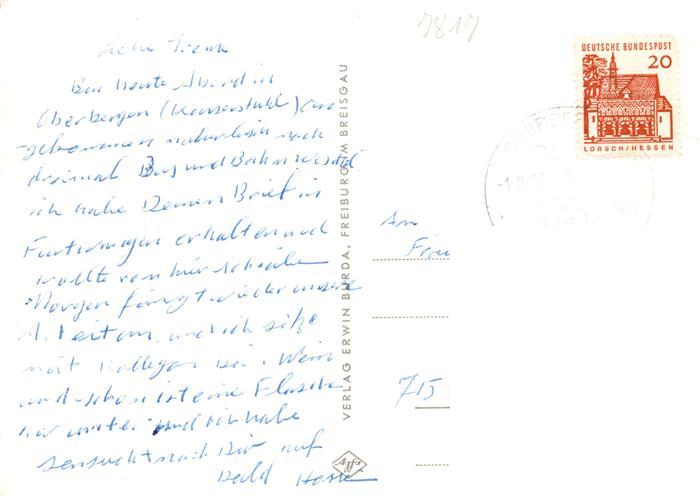 7817
Bin heute Abend in
Oberbergen (Kaiserstuhl) an
gekommen natürlich nach
dreimal Bus und Bahn
ich habe Deinen Brief in
Furtwangen erhalten und
wollte von hier schreiben
Morgen fängt wieder unsere
Arbeit an und ich sitze
mit Kollegen bei Wein
und schon ist eine Flasche
und ich habe
Sensucht nach Dir auf
Bald
VERLAG ERWIN BURDA, FREIBURG IM BREISGAU
Agfa
DEUTSCHE BUNDESPOST
20
LORSCH/HESSEN
An
Frau
715